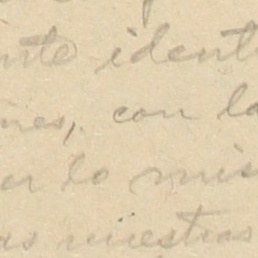 nte ident
nes, con la
or lo mis
as nuestras